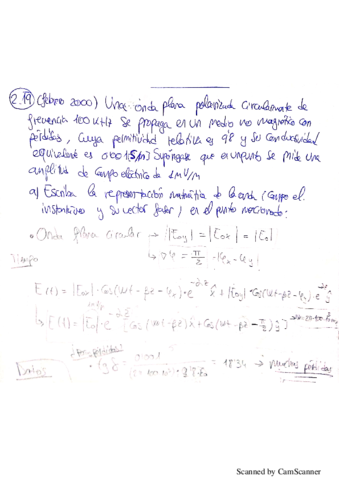 2.19 (febrero 2000) Una onda plana polarizada circularmente de
frecuencia 100 kHz se propaga en un medio no magnético con
pérdidas, cuya permitividad relativa es 9'8 y su conductividad
equivalente es 0'001 S/m. Supóngase que en un punto se mide una
amplitud de campo eléctrico de 1 mV/m
a) Escriba la representación matemática de la onda (campo el.
instantáneo y su vector fasor) en el punto mencionado:
• Onda plana circular → |Eoy| = |Eox| = |Eo|
Tiempo
E(t) = |Eox|·Cos(wt - βz - φx)·e^-αz x̂ + |Eoy|·Cos(wt - βz - φy)·e^-αz ŷ
Datos
= 18'34 → muchas pérdidas
Scanned by CamScanner